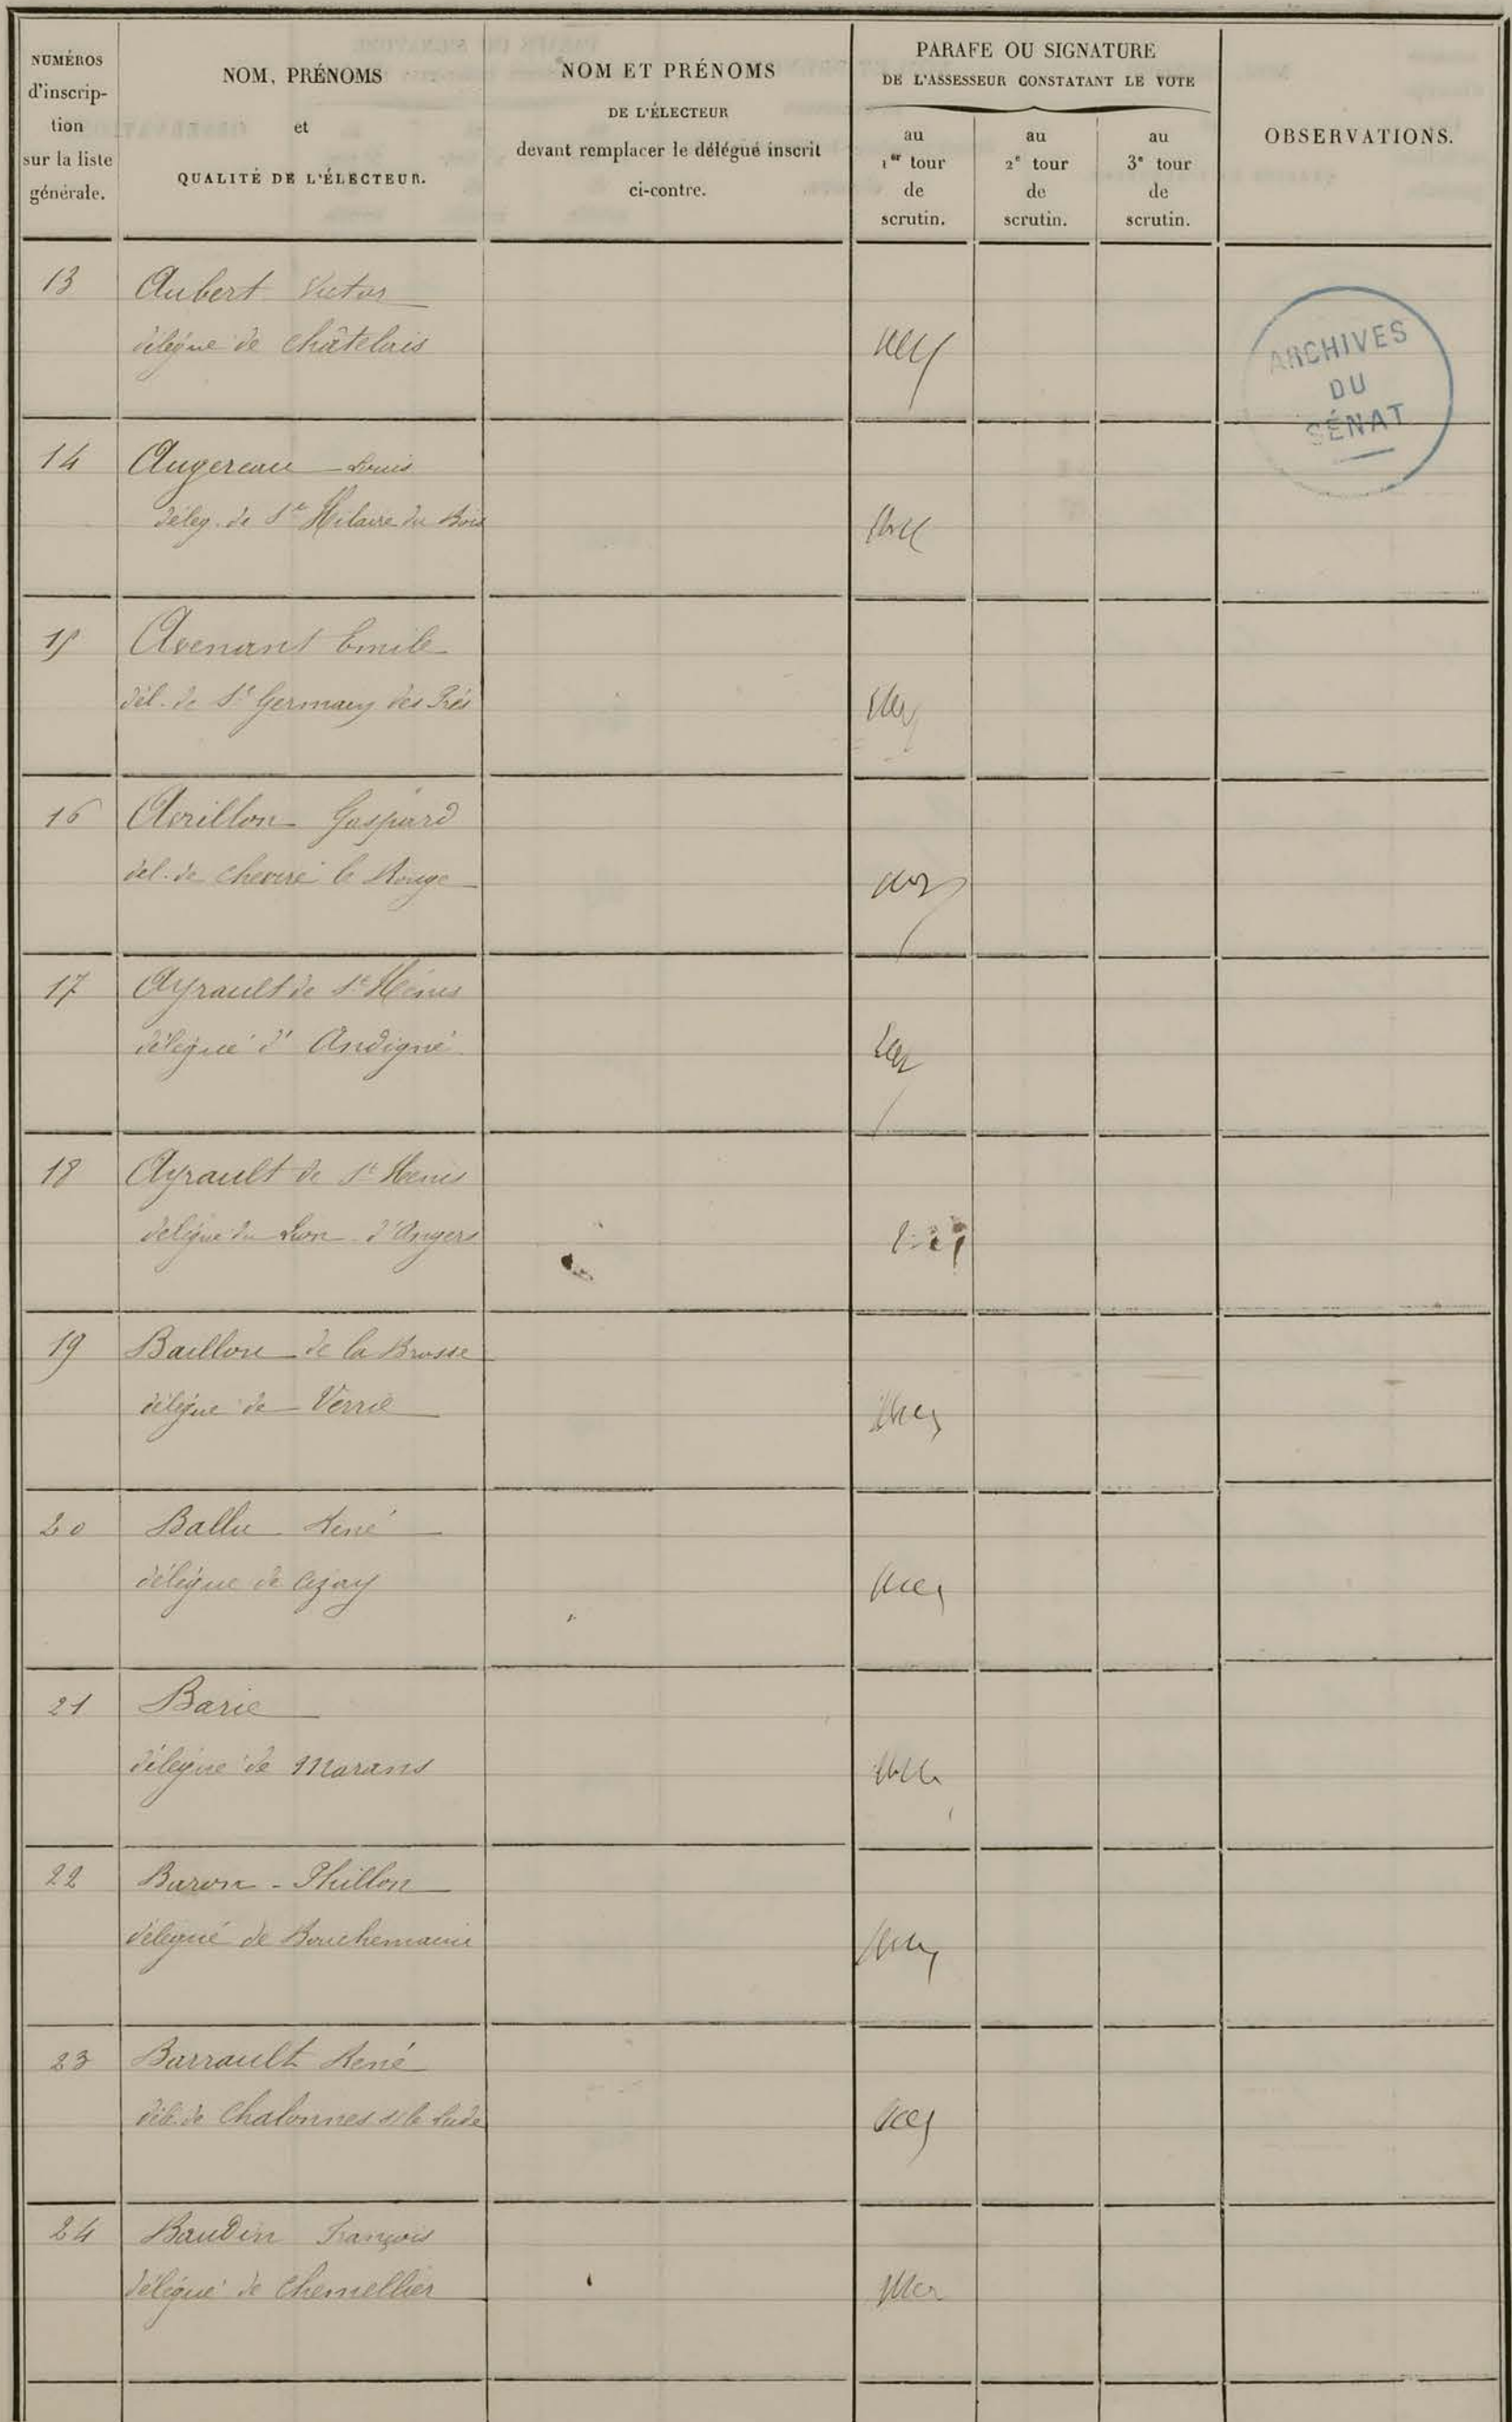 NUMÉROS
d'inscrip-
tion
sur la liste
générale.
NOM, PRÉNOMS
et
QUALITÉ DE L'ÉLECTEUR.
NOM ET PRÉNOMS
DE L'ÉLECTEUR
devant remplacer le délégué inscrit
ci-contre.
PARAFE OU SIGNATURE
DE L'ASSESSEUR CONSTATANT LE VOTE
au
1er tour
de
scrutin.
au
2e tour
de
scrutin.
au
3e tour
de
scrutin.
OBSERVATIONS.
ARCHIVES
DU
SÉNAT
13 Aubert Victor
délégué de Châtelais
14 Augereau Louis
délég. de St Hilaire du Bois
15 Avenant Emile
dél. de St Germain des Prés
16 Avrillon Gaspard
dél. de Cheviré le Rouge
17 Ayrault de St Hénis
délégué d'Andigné
18 Ayrault de St Hénis
délégué du Lion d'Angers
19 Baillou de la Brosse
délégué de Verrie
20 Ballu René
délégué de
21 Barie
délégué de Marans
22 Baron - Phillon
délégué de Bouchemaine
23 Barrault René
dél. de Chalonnes s/ le Lude
24 Baudin François
délégué de Chemellier